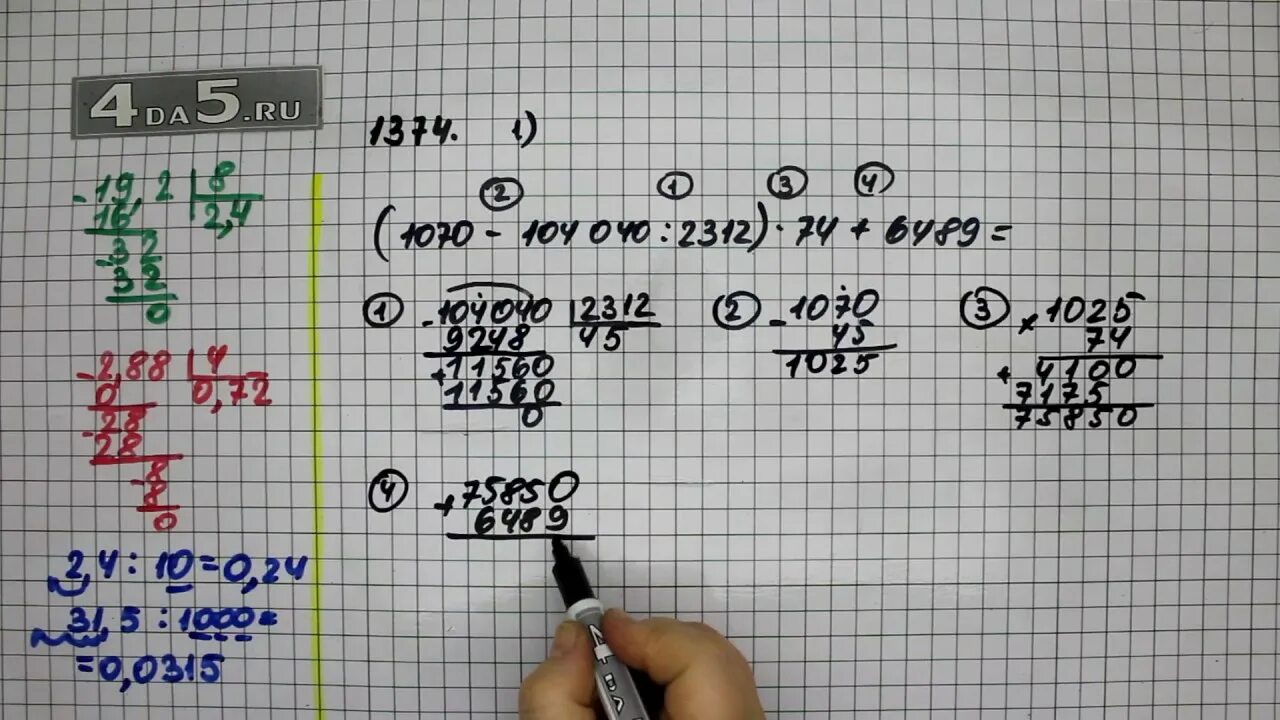 4DA5.RU
1374. 1)
② ① ③ ④
(1070 - 104 040 : 2312) · 74 + 6489 =
①
- 104040 | 2312
9248 | 45
- 11560
11560
0
②
- 1070
45
1025
③
× 1025
74
+ 4100
7175
75850
④
+ 75850
6489
- 19,2 | 8
16 | 2,4
- 32
32
0
- 2,88 | 4
0 | 0,72
- 28
28
- 8
8
0
2,4 : 10 = 0,24
31,5 : 1000 =
= 0,0315
4DA